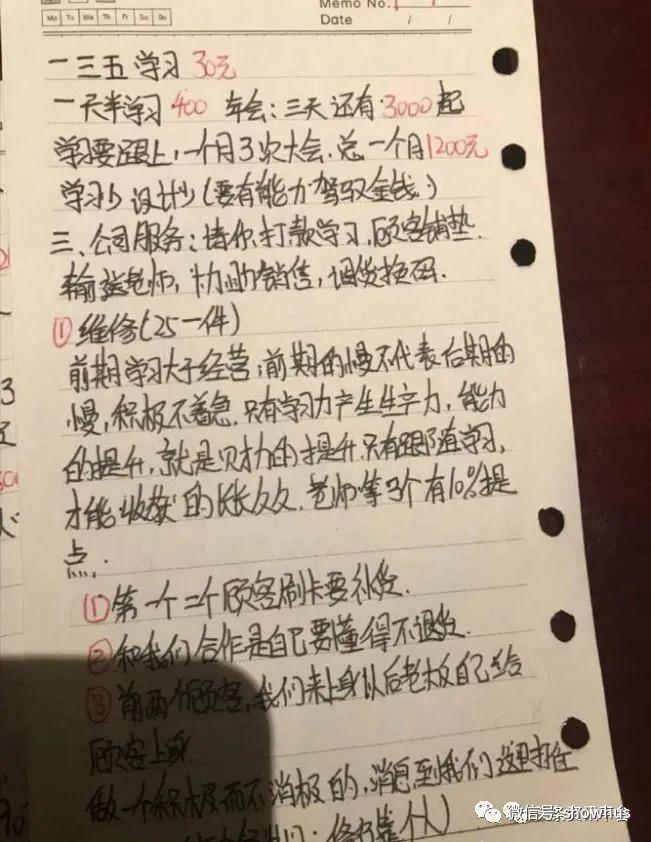 Memo No.
Mo Tu We Th Fr Sa Su
Date / /
一三五学习 30元
一天半学习 400 年会：三天还有 3000起
学习要跟上，一个月3次大会，总一个月1200元
学习少设计少（要有能力驾驭金钱。）
三、公司服务：请你打款学习，顾客铺垫.
输送老师，协助销售，调货换码.
① 维修（25一件）
前期学习大于经营，前期的慢不代表后期的
慢，积极不着急. 只有学习力产生生产力，能力
的提升，就是财力的提升. 只有跟随学习，
才能收获的长长久久. 老师等3个有10%提
点.
① 第一个二个顾客刷卡要补货.
② 和我们合作是自己要懂得不退货.
③ 前两个顾客，我们来上身以后老板自己给
顾客上身.
做一个积极而不消极的，消息到我们这里打住
修行靠个人）
showhus